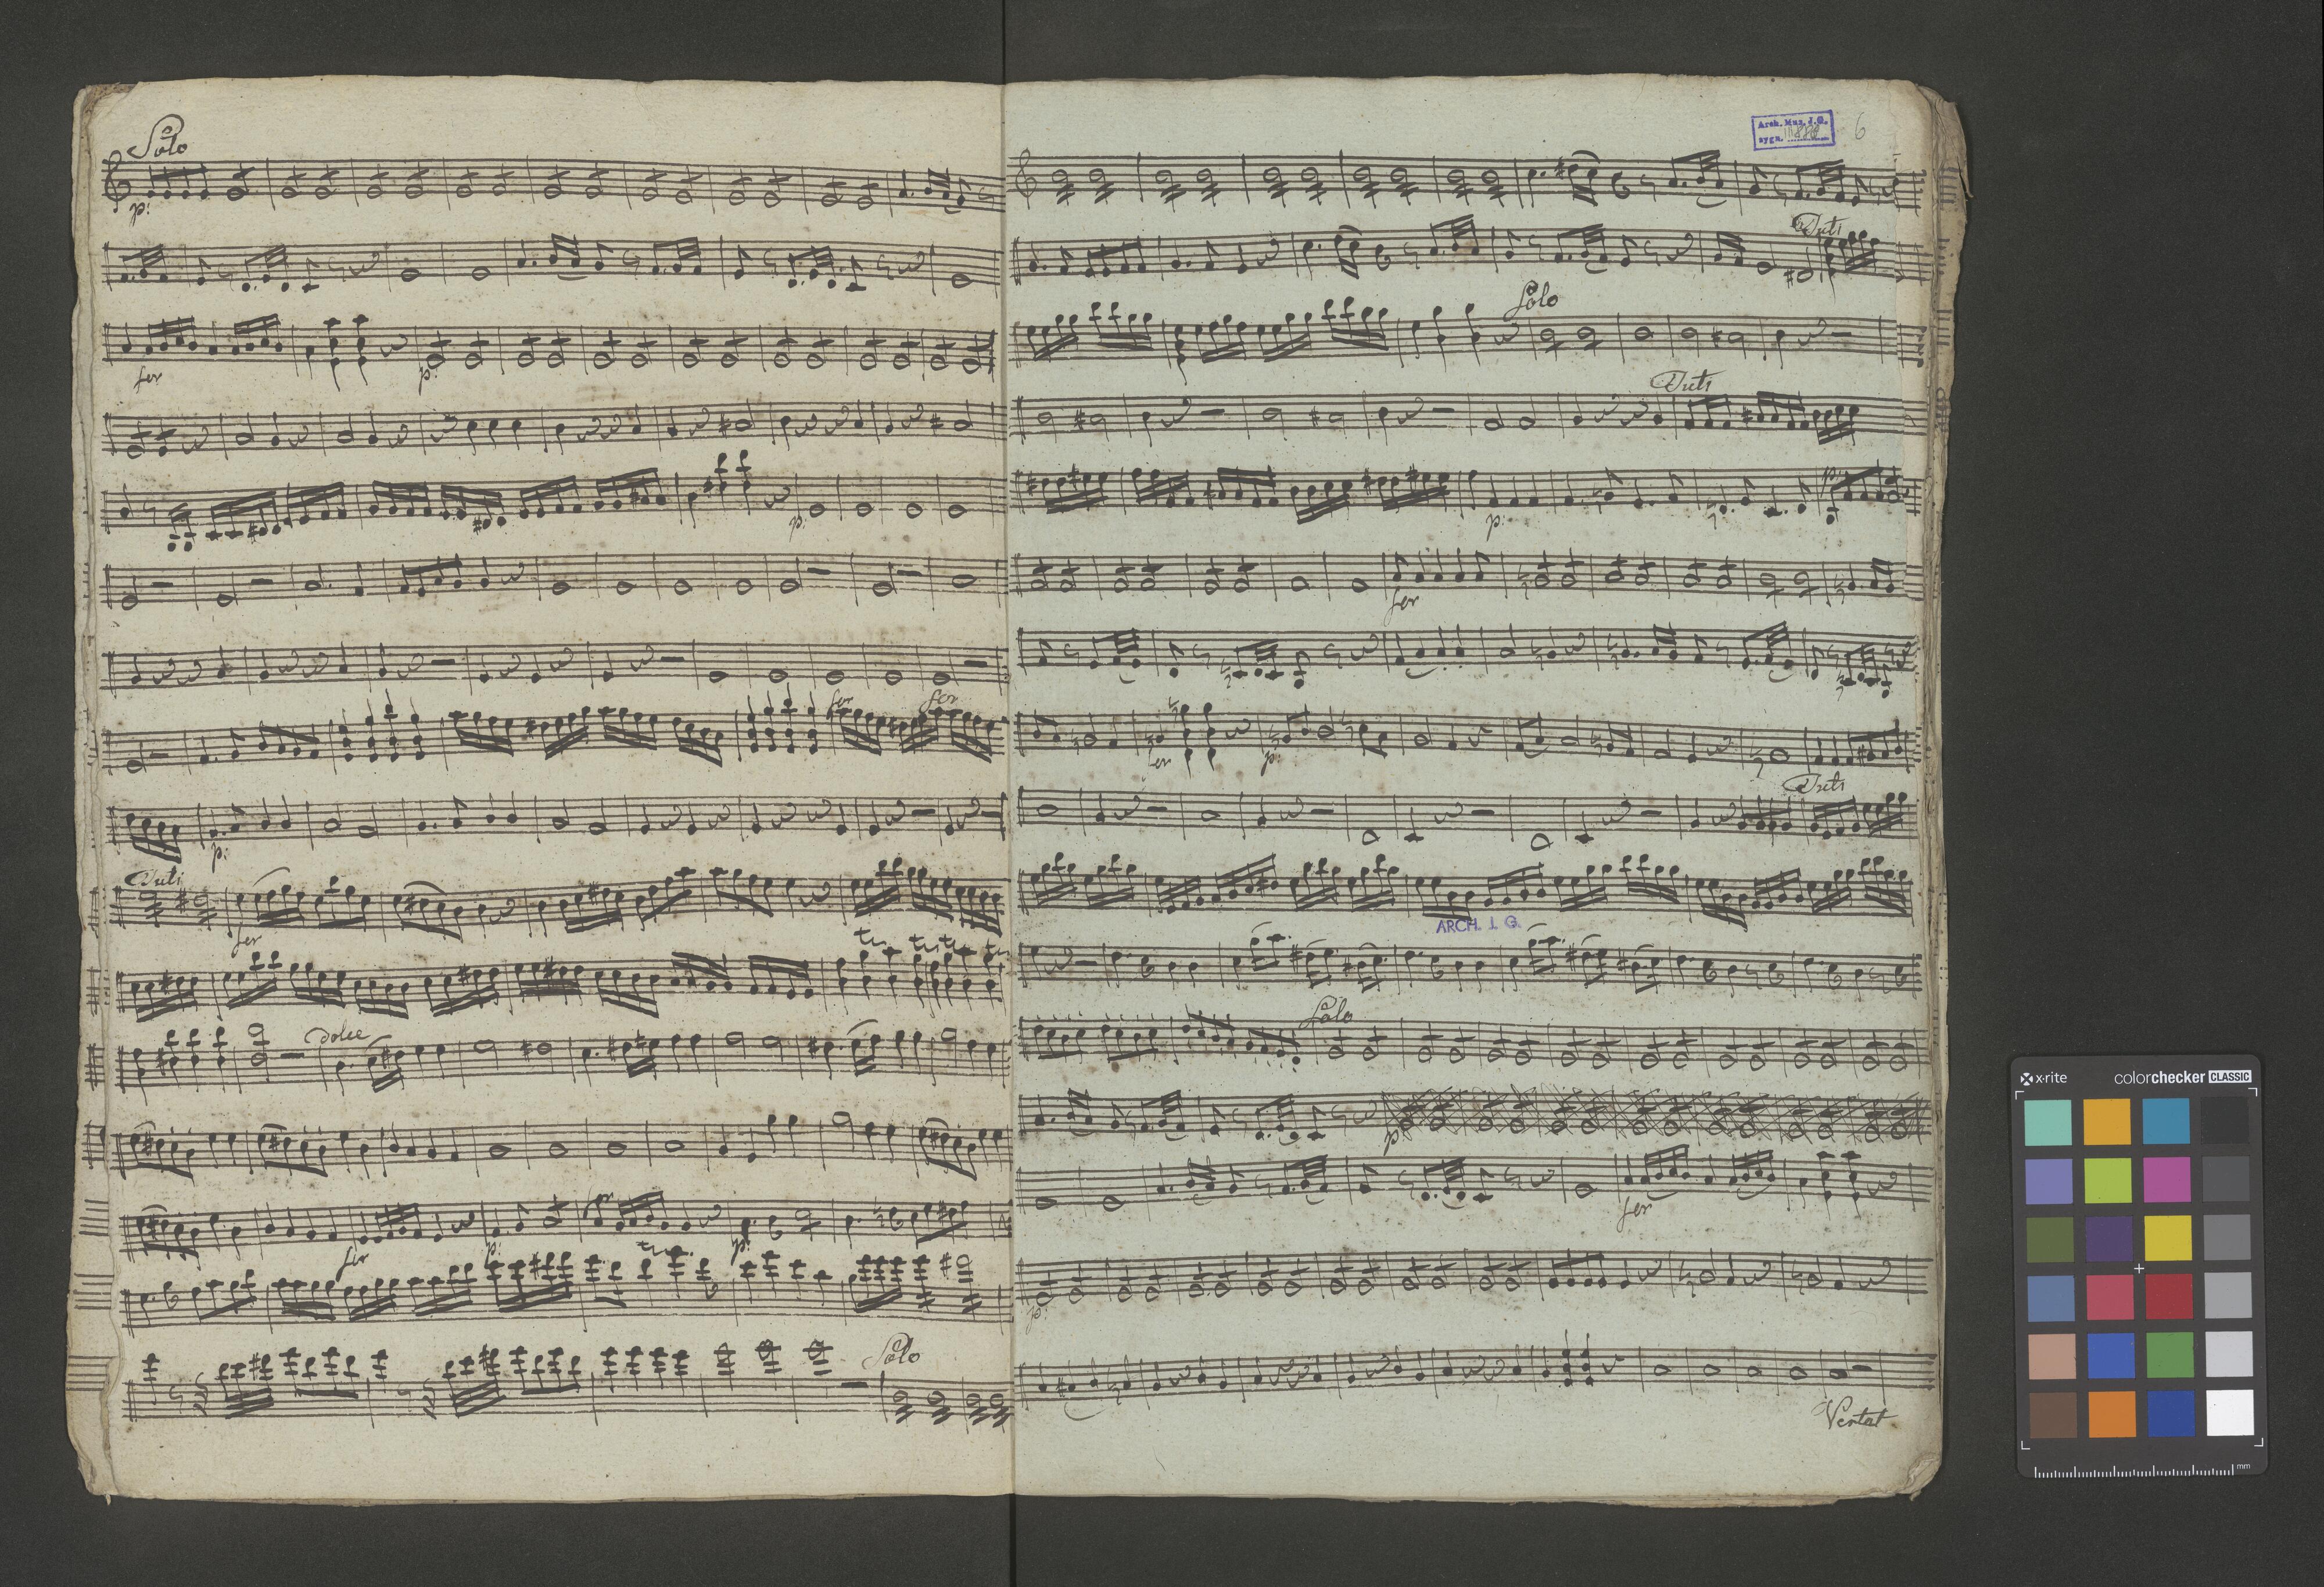 Solo
p:
fer
p:
p:
fer fer
p:
Tuti
fer
tr tr tr tr
Dolce
fer p: fer p:
tr
Solo
Arch. Muz. J. G.
sygn.
6
Tuti
Solo
Tuti
p: p:
fer
fer p:
Tuti
ARCH. J. G.
Solo
p
fer
p:
Vertat
x-rite colorchecker CLASSIC
mm